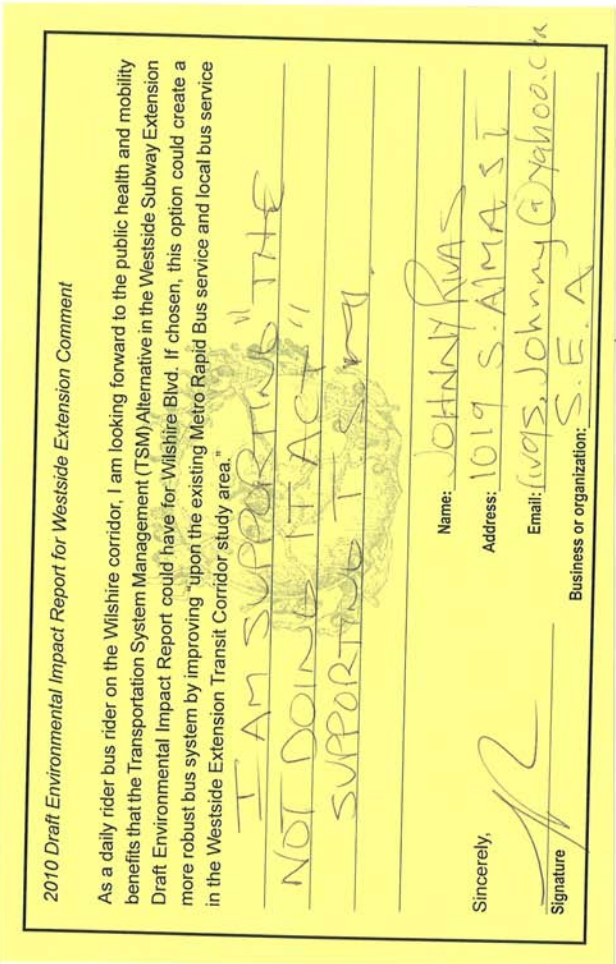 2010 Draft Environmental Impact Report for Westside Extension Comment
As a daily rider bus rider on the Wilshire corridor, I am looking forward to the public health and mobility
benefits that the Transportation System Management (TSM) Alternative in the Westside Subway Extension
Draft Environmental Impact Report could have for Wilshire Blvd. If chosen, this option could create a
more robust bus system by improving "upon the existing Metro Rapid Bus service and local bus service
in the Westside Extension Transit Corridor study area."
I AM SUPPORTING "THE
NOT DOING IT ACT"
SUPPORTING
Sincerely,
Signature
Name: JOHNNY RIVAS
Address: 1019 S.
Email:
Business or organization: S.E.A